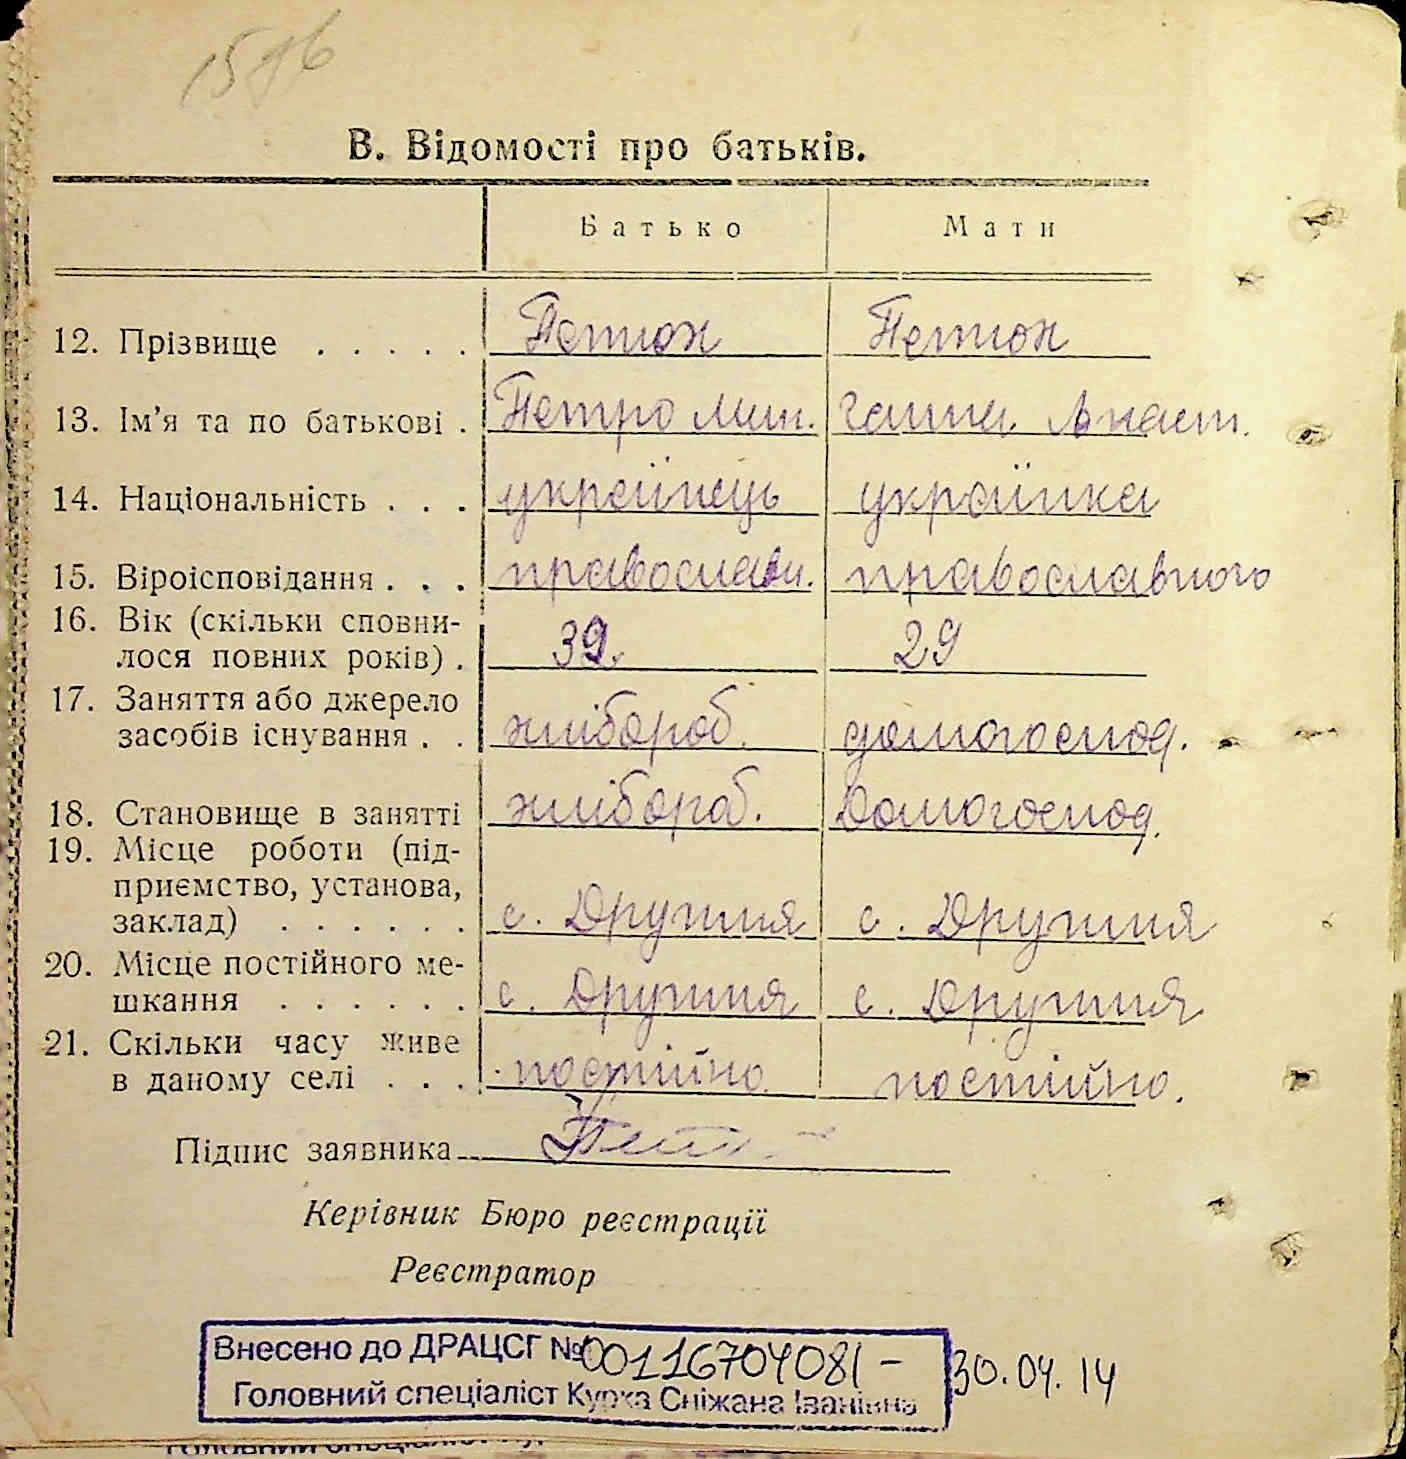 1576
В. Відомості про батьків.
Батько Мати
12. Прізвище . . . . . Петюх Петюх
13. Ім'я та по батькові . Петро Мик. Ганна Анаст.
14. Національність . . . українець українка
15. Віроісповідання . . . православн. православного
16. Вік (скільки сповни- 39. 29
лося повних років) .
17. Заняття або джерело
засобів існування . . хлібороб. домогоспод.
18. Становище в занятті хлібороб. Домогоспод.
19. Місце роботи (під-
приємство, установа,
заклад) . . . . . . с. Дружня с. Дружня
20. Місце постійного ме-
шкання . . . . . . с. Дружня с. Дружня
21. Скільки часу живе
в даному селі . . . постійно постійно.
Підпис заявника
Керівник Бюро реєстрації
Реєстратор
Внесено до ДРАЦСГ №00116704081 – 30.04.14
Головний спеціаліст Курка Сніжана Іванівна